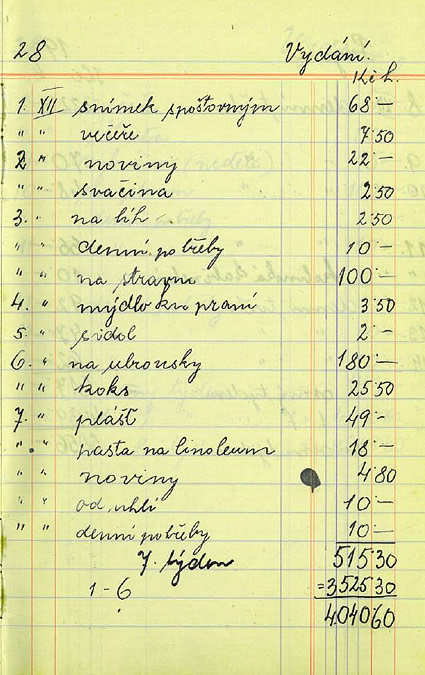 28 Vydání.
K. h.
1. XII snímek spoštovným 68·—
" " večeře 7·50
2. " noviny 22·—
" " svačina 2·50
3. " na líh 2·50
" " denní potřeby 10·—
" " na stravu 100·—
4. " mýdlo ku praní 3·50
5. " sidol 2·—
6. " na ubrousky 180·—
" " koks 25·50
7. " plášť 49·—
" " pasta na linoleum 18·—
" " noviny 4·80
" " od uhlí 10·—
" " denní potřeby 10·—
7. týden 515·30
1-6 =3525·30
4040·60